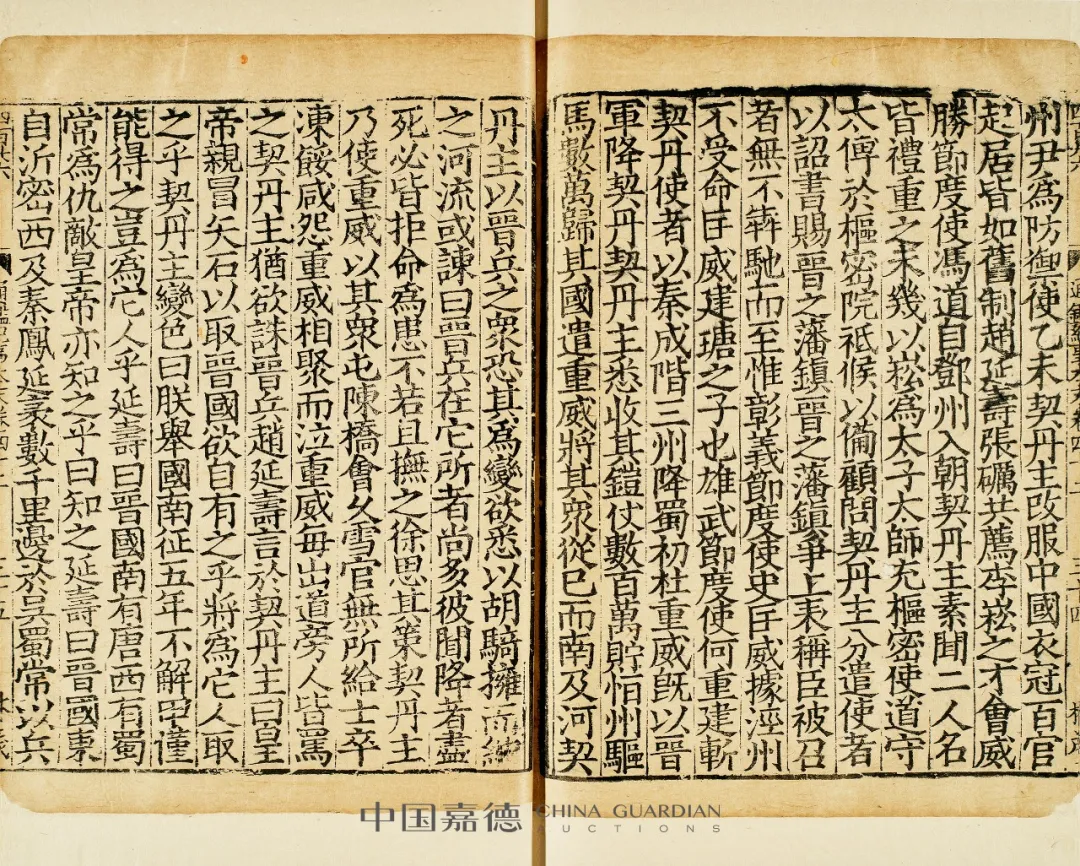 州尹爲防禦使乙未契丹主改服中國衣冠百官
起居皆如舊制趙延壽張礪共薦李崧之才會威
勝節度使馮道自鄧州入朝契丹主素聞二人名
皆禮重之未幾以崧爲太子太師充樞密使道守
太傅於樞密院祗候以備顧問契丹主分遣使者
以詔書賜晉之藩鎮晉之藩鎮爭上表稱臣被召
者無不犇馳而至惟彰義節度使史匡威據涇州
不受命匡威建瑭之子也雄武節度使何重建斬
契丹使者以秦成階三州降蜀初杜重威旣以晉
軍降契丹契丹主悉收其鎧仗數百萬貯恒州驅
馬數萬歸其國遣重威將其衆從已而南及河契
丹主以晉兵之衆恐其爲變欲悉以胡騎擁而納
之河流或諫曰晉兵在它所者尚多彼聞降者盡
死必皆拒命爲患不若且撫之徐思其策契丹主
乃使重威以其衆屯陳橋會久雪官無所給士卒
凍餒咸怨重威相聚而泣重威每出道旁人皆罵
之契丹主猶欲誅晉兵趙延壽言於契丹主曰皇
帝親冒矢石以取晉國欲自有之乎將爲它人取
之乎契丹主變色曰朕舉國南征五年不解甲僅
能得之豈爲它人乎延壽曰晉國南有唐西有蜀
常爲仇敵皇帝亦知之乎曰知之延壽曰晉國東
自沂密西及秦鳳延袤數千里邊於吳蜀常以兵
中国嘉德 CHINA GUARDIAN
AUCTIONS